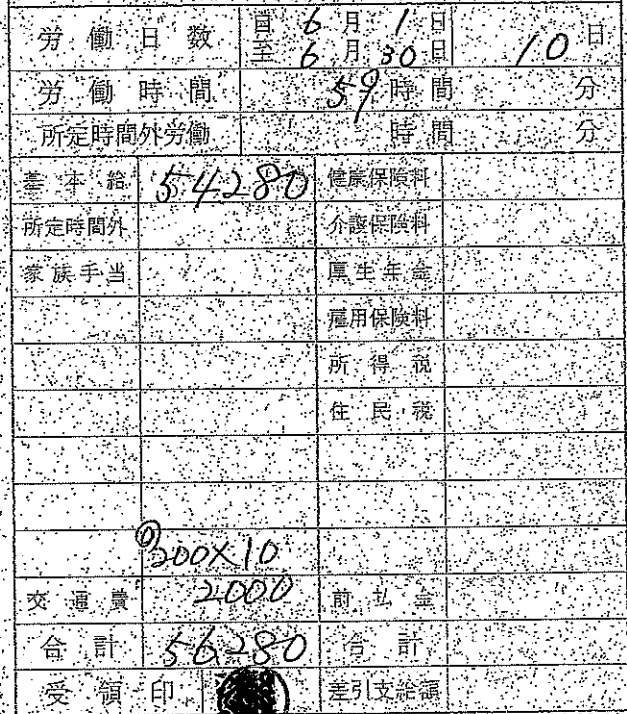 労働日数 自 6月 1日 10日
至 6月 30日
労働時間 59時間 分
所定時間外労働 時間 分
基本給 54280 健康保険料
所定時間外 介護保険料
家族手当 厚生年金
雇用保険料
所得税
住民税
200×10
交通費 2000 前払金
合計 56280 合計
受領印 差引支給額